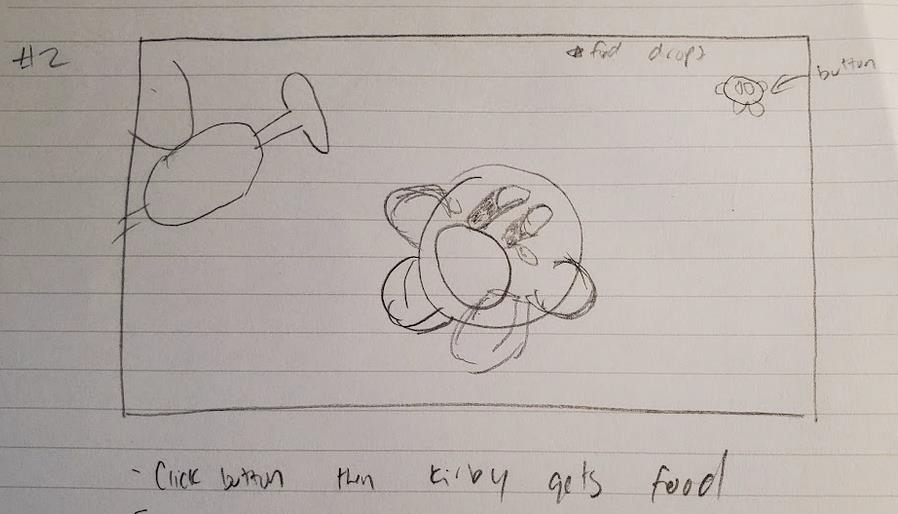 #2
food drops
button
- Click button then kirby gets food